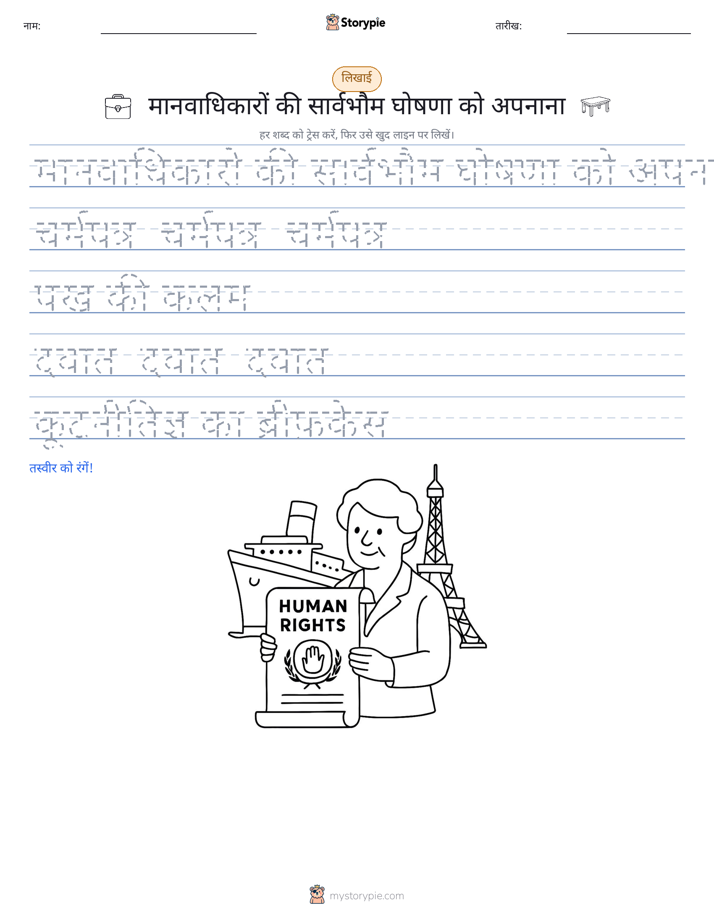 नाम:
Storypie
तारीख:
लिखाई
मानवाधिकारों की सार्वभौम घोषणा को अपनाना
हर शब्द को ट्रेस करें, फिर उसे खुद लाइन पर लिखें।
मानवाधिकारों की सार्वभौम घोषणा को अपन
चर्मपत्र चर्मपत्र चर्मपत्र
पंख की कलम
दवात दवात दवात
कूटनीतिज्ञ का ब्रीफ़केस
तस्वीर को रंगें!
HUMAN
RIGHTS
mystorypie.com